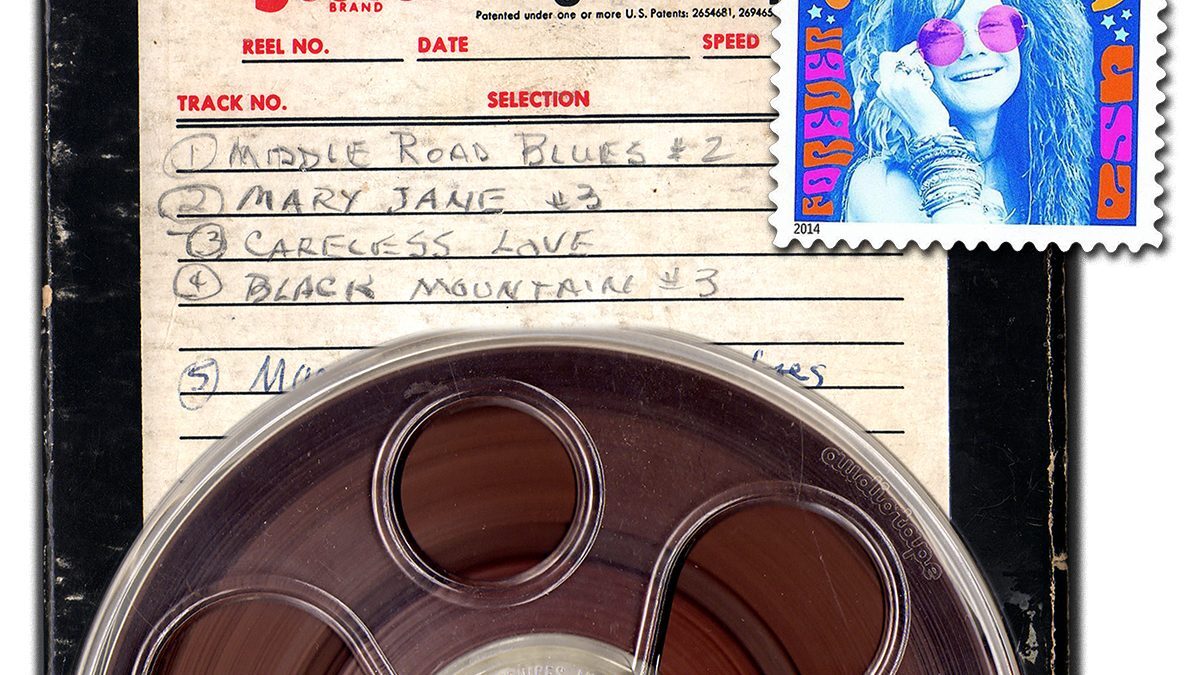 BRAND
Patented under one or more U.S. Patents: 2654681, 269465
REEL NO. DATE SPEED
TRACK NO. SELECTION
① MIDDLE ROAD BLUES #2
② MARY JANE #3
③ CARELESS LOVE
④ BLACK MOUNTAIN #3
⑤
audiotape
FOREVER
USA
2014